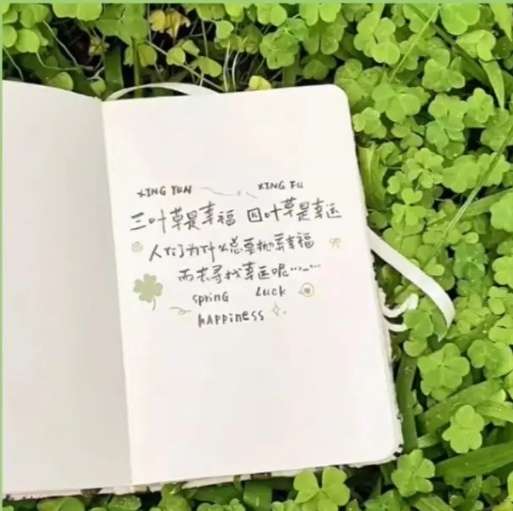 XING YUN XING FU
三叶草是幸福 四叶草是幸运
人们为什么总要抛弃幸福
而去寻找幸运呢……
spring Luck
hAPPiness